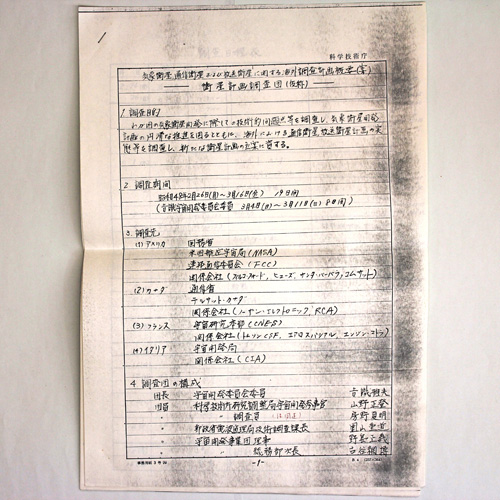 科学技術庁
気象衛星、通信衛星および放送衛星に関する海外調査計画概要(案)
— 衛星計画調査団(仮称) —
1. 調査目的
わが国の気象衛星開発に際しての技術的問題点等を調査し、気象衛星開発
計画の円滑な推進を図るとともに、海外における通信衛星、放送衛星計画の実
態等を調査し、新たな衛星計画の立案に資する。
2. 調査期間
昭和48年2月26日(月)〜3月16日(金) 19日間
(音識宇宙開発委員会委員 3月4日(日)〜3月11日(日) 8日間)
3. 調査先
(1) アメリカ 国務省
米国航空宇宙局(NASA)
連邦通信委員会(FCC)
関係会社(フィルコフォード、ヒューズ、サンタバーバラ、コムサット)
(2) カナダ 通信省
テレサット・カナダ
関係会社(ノーザン・エレクトロニック、RCA)
(3) フランス 宇宙研究本部(CNES)
関係会社(トムソンCSF、エアロスパシアル、エンジン・マトラ)
(4) イタリア 宇宙開発局
関係会社(CIA)
4. 調査団の構成
団長 宇宙開発委員会委員
団員 科学技術庁研究調整局宇宙開発参事官 山野正登
〃 調査員
〃 郵政省電波監理局技術調査課長
〃 宇宙開発事業団理事
〃 〃 総務部次長
-1-